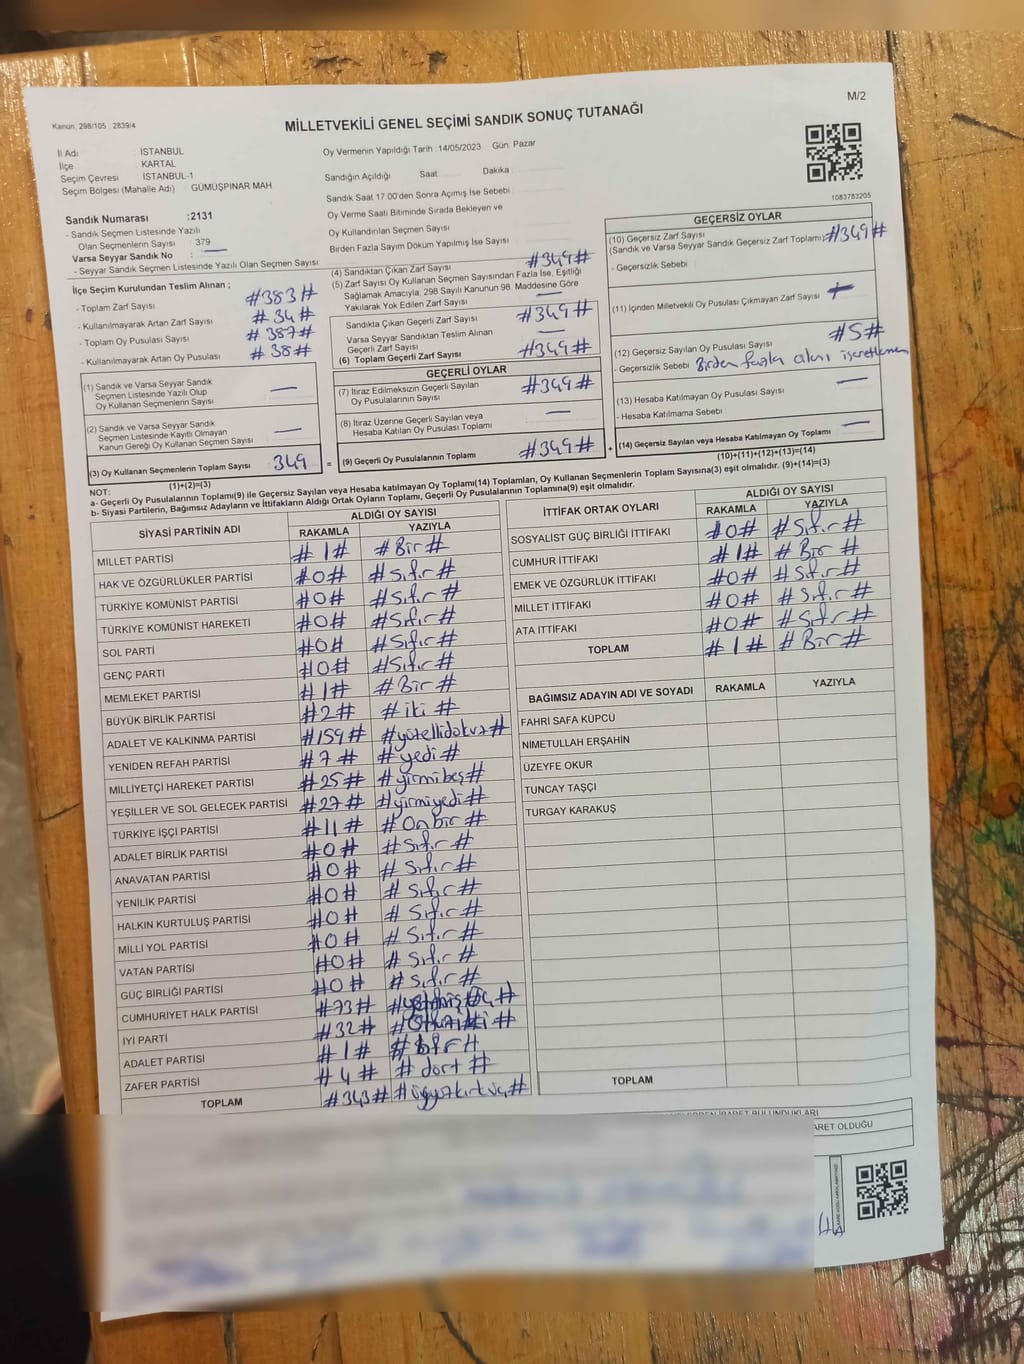 M/2
Kanun: 298/105 , 2839/4
MİLLETVEKİLİ GENEL SEÇİMİ SANDIK SONUÇ TUTANAĞI
İl Adı İSTANBUL
İlçe KARTAL
Seçim Çevresi İSTANBUL-1
Seçim Bölgesi (Mahalle Adı) GÜMÜŞPINAR MAH
Sandık Numarası :2131
- Sandık Seçmen Listesinde Yazılı
Olan Seçmenlerin Sayısı 379
Varsa Seyyar Sandık No : —
- Seyyar Sandık Seçmen Listesinde Yazılı Olan Seçmen Sayısı
Oy Vermenin Yapıldığı Tarih :14/05/2023 Gün Pazar
Sandığın Açıldığı Saat Dakika
Sandık Saat 17 00'den Sonra Açımış İse Sebebi
Oy Verme Saati Bitiminde Sırada Bekleyen ve
Oy Kullandırılan Seçmen Sayısı
Birden Fazla Sayım Döküm Yapılmış İse Sayısı
1083783205
İlçe Seçim Kurulundan Teslim Alınan ;
- Toplam Zarf Sayısı #383#
- Kullanılmayarak Artan Zarf Sayısı #34#
- Toplam Oy Pusulası Sayısı #387#
- Kullanılmayarak Artan Oy Pusulası #38#
(1) Sandık ve Varsa Seyyar Sandık
Seçmen Listesinde Yazılı Olup
Oy Kullanan Seçmenlerin Sayısı —
(2) Sandık ve Varsa Seyyar Sandık
Seçmen Listesinde Kayıtlı Olmayan
Kanun Gereği Oy Kullanan Seçmen Sayısı —
(3) Oy Kullanan Seçmenlerin Toplam Sayısı 349
(1)+(2)=(3)
(4) Sandıktan Çıkan Zarf Sayısı #349#
(5) Zarf Sayısı Oy Kullanan Seçmen Sayısından Fazla İse, Eşitliği
Sağlamak Amacıyla, 298 Sayılı Kanunun 98. Maddesine Göre
Yakılarak Yok Edilen Zarf Sayısı —
Sandıkta Çıkan Geçerli Zarf Sayısı #349#
Varsa Seyyar Sandıktan Teslim Alınan
Geçerli Zarf Sayısı —
(6) Toplam Geçerli Zarf Sayısı #349#
GEÇERLİ OYLAR
(7) İtiraz Edilmeksizin Geçerli Sayılan
Oy Pusulalarının Sayısı #349#
(8) İtiraz Üzerine Geçerli Sayılan veya
Hesaba Katılan Oy Pusulası Toplamı —
= (9) Geçerli Oy Pusulalarının Toplamı #349# +
GEÇERSİZ OYLAR
(10) Geçersiz Zarf Sayısı
(Sandık ve Varsa Seyyar Sandık Geçersiz Zarf Toplamı) #349#
- Geçersizlik Sebebi
(11) İçinden Milletvekili Oy Pusulası Çıkmayan Zarf Sayısı
(12) Geçersiz Sayılan Oy Pusulası Sayısı #5#
- Geçersizlik Sebebi Birden fazla alanı işaretlenmesi
(13) Hesaba Katılmayan Oy Pusulası Sayısı —
- Hesaba Katılmama Sebebi
(14) Geçersiz Sayılan veya Hesaba Katılmayan Oy Toplamı —
(10)+(11)+(12)+(13)=(14)
NOT:
a- Geçerli Oy Pusulalarının Toplamı(9) ile Geçersiz Sayılan veya Hesaba Katılmayan Oy Toplamı(14) Toplamları, Oy Kullanan Seçmenlerin Toplam Sayısına(3) eşit olmalıdır. (9)+(14)=(3)
b- Siyasi Partilerin, Bağımsız Adayların ve İttifakların Aldığı Ortak Oyların Toplamı, Geçerli Oy Pusulalarının Toplamına(9) eşit olmalıdır.
SİYASİ PARTİNİN ADI ALDIĞI OY SAYISI
RAKAMLA YAZIYLA
MİLLET PARTİSİ #1# #Bir#
HAK VE ÖZGÜRLÜKLER PARTİSİ #0# #Sıfır#
TÜRKİYE KOMÜNİST PARTİSİ #0# #Sıfır#
TÜRKİYE KOMÜNİST HAREKETİ #0# #Sıfır#
SOL PARTİ #0# #Sıfır#
GENÇ PARTİ #0# #Sıfır#
MEMLEKET PARTİSİ #1# #Bir#
BÜYÜK BİRLİK PARTİSİ #2# #iki#
ADALET VE KALKINMA PARTİSİ #159# #yüzellidokuz#
YENİDEN REFAH PARTİSİ #7# #yedi#
MİLLİYETÇİ HAREKET PARTİSİ #25# #yirmibeş#
YEŞİLLER VE SOL GELECEK PARTİSİ #27# #yirmiyedi#
TÜRKİYE İŞÇİ PARTİSİ #11# #Onbir#
ADALET BİRLİK PARTİSİ #0# #Sıfır#
ANAVATAN PARTİSİ #0# #Sıfır#
YENİLİK PARTİSİ #0# #Sıfır#
HALKIN KURTULUŞ PARTİSİ #0# #Sıfır#
MİLLİ YOL PARTİSİ #0# #Sıfır#
VATAN PARTİSİ #0# #Sıfır#
GÜÇ BİRLİĞİ PARTİSİ #0# #Sıfır#
CUMHURİYET HALK PARTİSİ #73# #yetmişüç#
İYİ PARTİ #32# #Otuziki#
ADALET PARTİSİ #1# #bir#
ZAFER PARTİSİ #4# #dört#
TOPLAM #343# #üçyüzkırküç#
İTTİFAK ORTAK OYLARI ALDIĞI OY SAYISI
RAKAMLA YAZIYLA
SOSYALİST GÜÇ BİRLİĞİ İTTİFAKI #0# #Sıfır#
CUMHUR İTTİFAKI #1# #Bir#
EMEK VE ÖZGÜRLÜK İTTİFAKI #0# #Sıfır#
MİLLET İTTİFAKI #0# #Sıfır#
ATA İTTİFAKI #0# #Sıfır#
TOPLAM #1# #Bir#
BAĞIMSIZ ADAYIN ADI VE SOYADI RAKAMLA YAZIYLA
FAHRİ SAFA KÜPCÜ
NİMETULLAH ERŞAHİN
ÜZEYFE OKUR
TUNCAY TAŞÇI
TURGAY KARAKUŞ
TOPLAM
ARET OLDUĞU